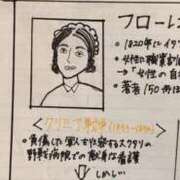 フローレ
・1820年にイタ
・女性に職業
→「女性の自
・著者150冊
クリミア戦争(1853~1856)
・負傷した軍人を診察するスクタリの
野戦病院での献身な看護
しかし